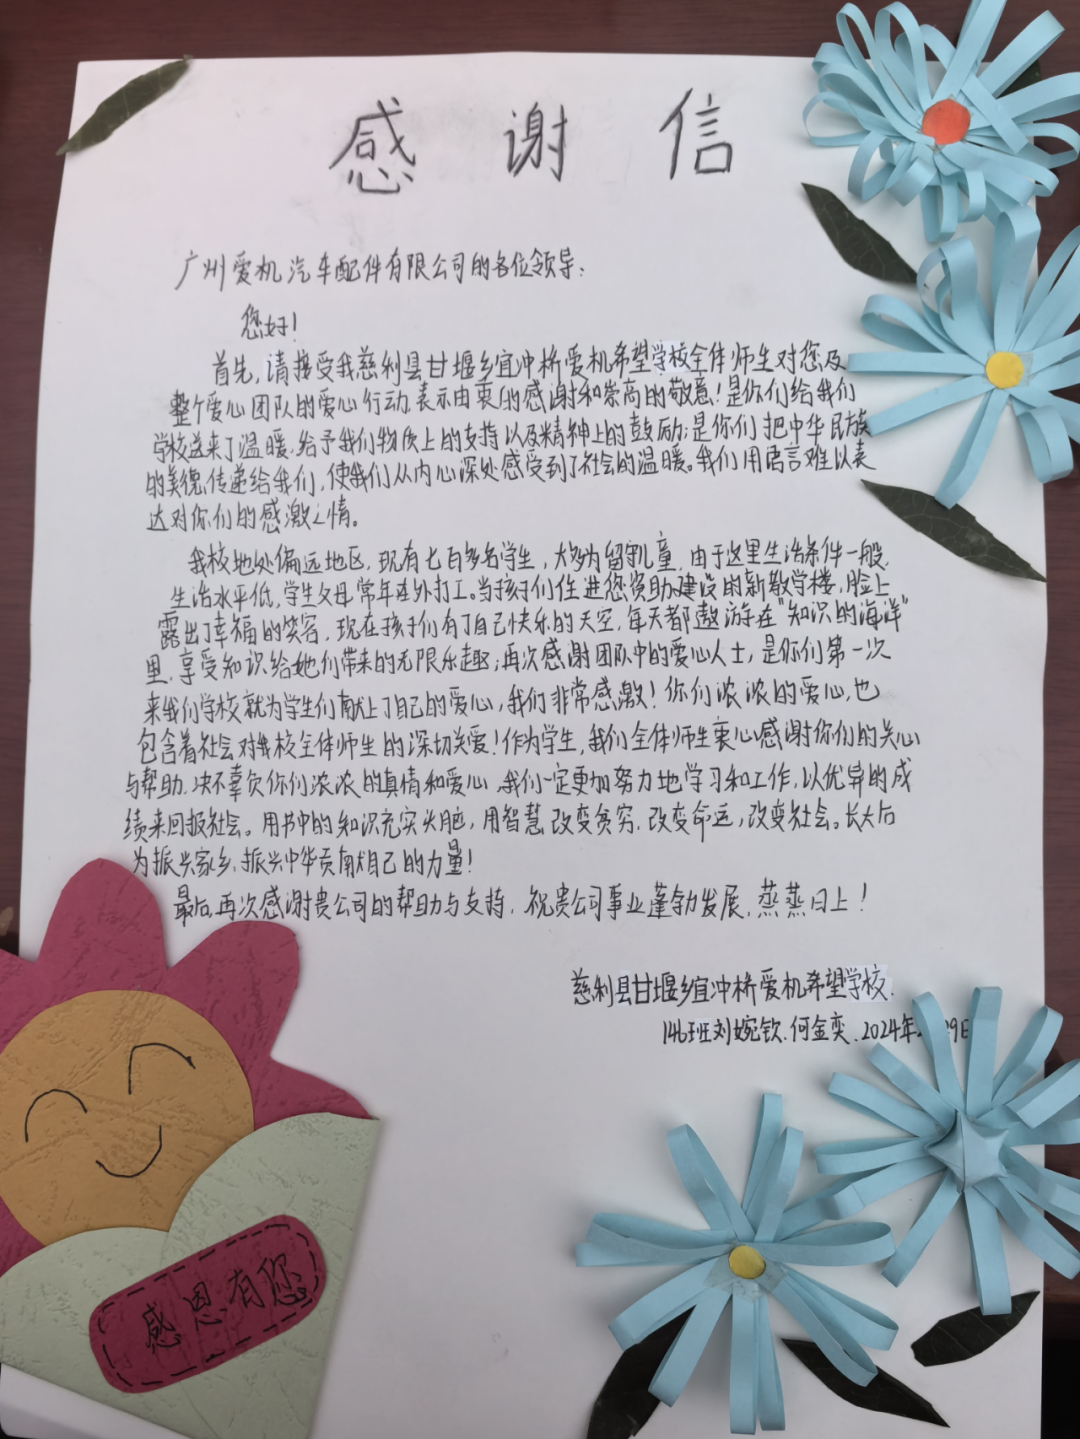 感谢信
广州爱机汽车配件有限公司的各位领导:
您好!
首先,请接受我慈利县甘堰乡宜冲桥爱机希望学校全体师生对您及
整个爱心团队的爱心行动,表示由衷的感谢和崇高的敬意!是你们给我们
学校送来了温暖,给予我们物质上的支持以及精神上的鼓励;是你们把中华民族
的美德传递给我们,使我们从内心深处感受到了社会的温暖。我们用语言难以表
达对你们的感激之情。
我校地处偏远地区,现有七百多名学生,大多为留守儿童,由于这里生活条件一般,
生活水平低,学生父母常年在外打工。当孩子们住进您资助建设的新教学楼,脸上
露出了幸福的笑容,现在孩子们有了自己快乐的天空,每天都遨游在“知识的海洋”
里,享受知识给她们带来的无限乐趣;再次感谢团队中的爱心人士,是你们第一次
来我们学校就为学生们献上了自己的爱心,我们非常感激!你们浓浓的爱心,也
包含着社会对我校全体师生的深切关爱!作为学生,我们全体师生衷心感谢你们的关心
与帮助,决不辜负你们浓浓的真情和爱心,我们一定更加努力地学习和工作,以优异的成
绩来回报社会。用书中的知识充实头脑,用智慧改变贫穷,改变命运,改变社会。长大后
为振兴家乡,振兴中华贡献自己的力量!
最后,再次感谢贵公司的帮助与支持,祝贵公司事业蓬勃发展,蒸蒸日上!
慈利县甘堰乡宜冲桥爱机希望学校.
146班刘婉钦.何金奕.2024年 29日
感恩有您